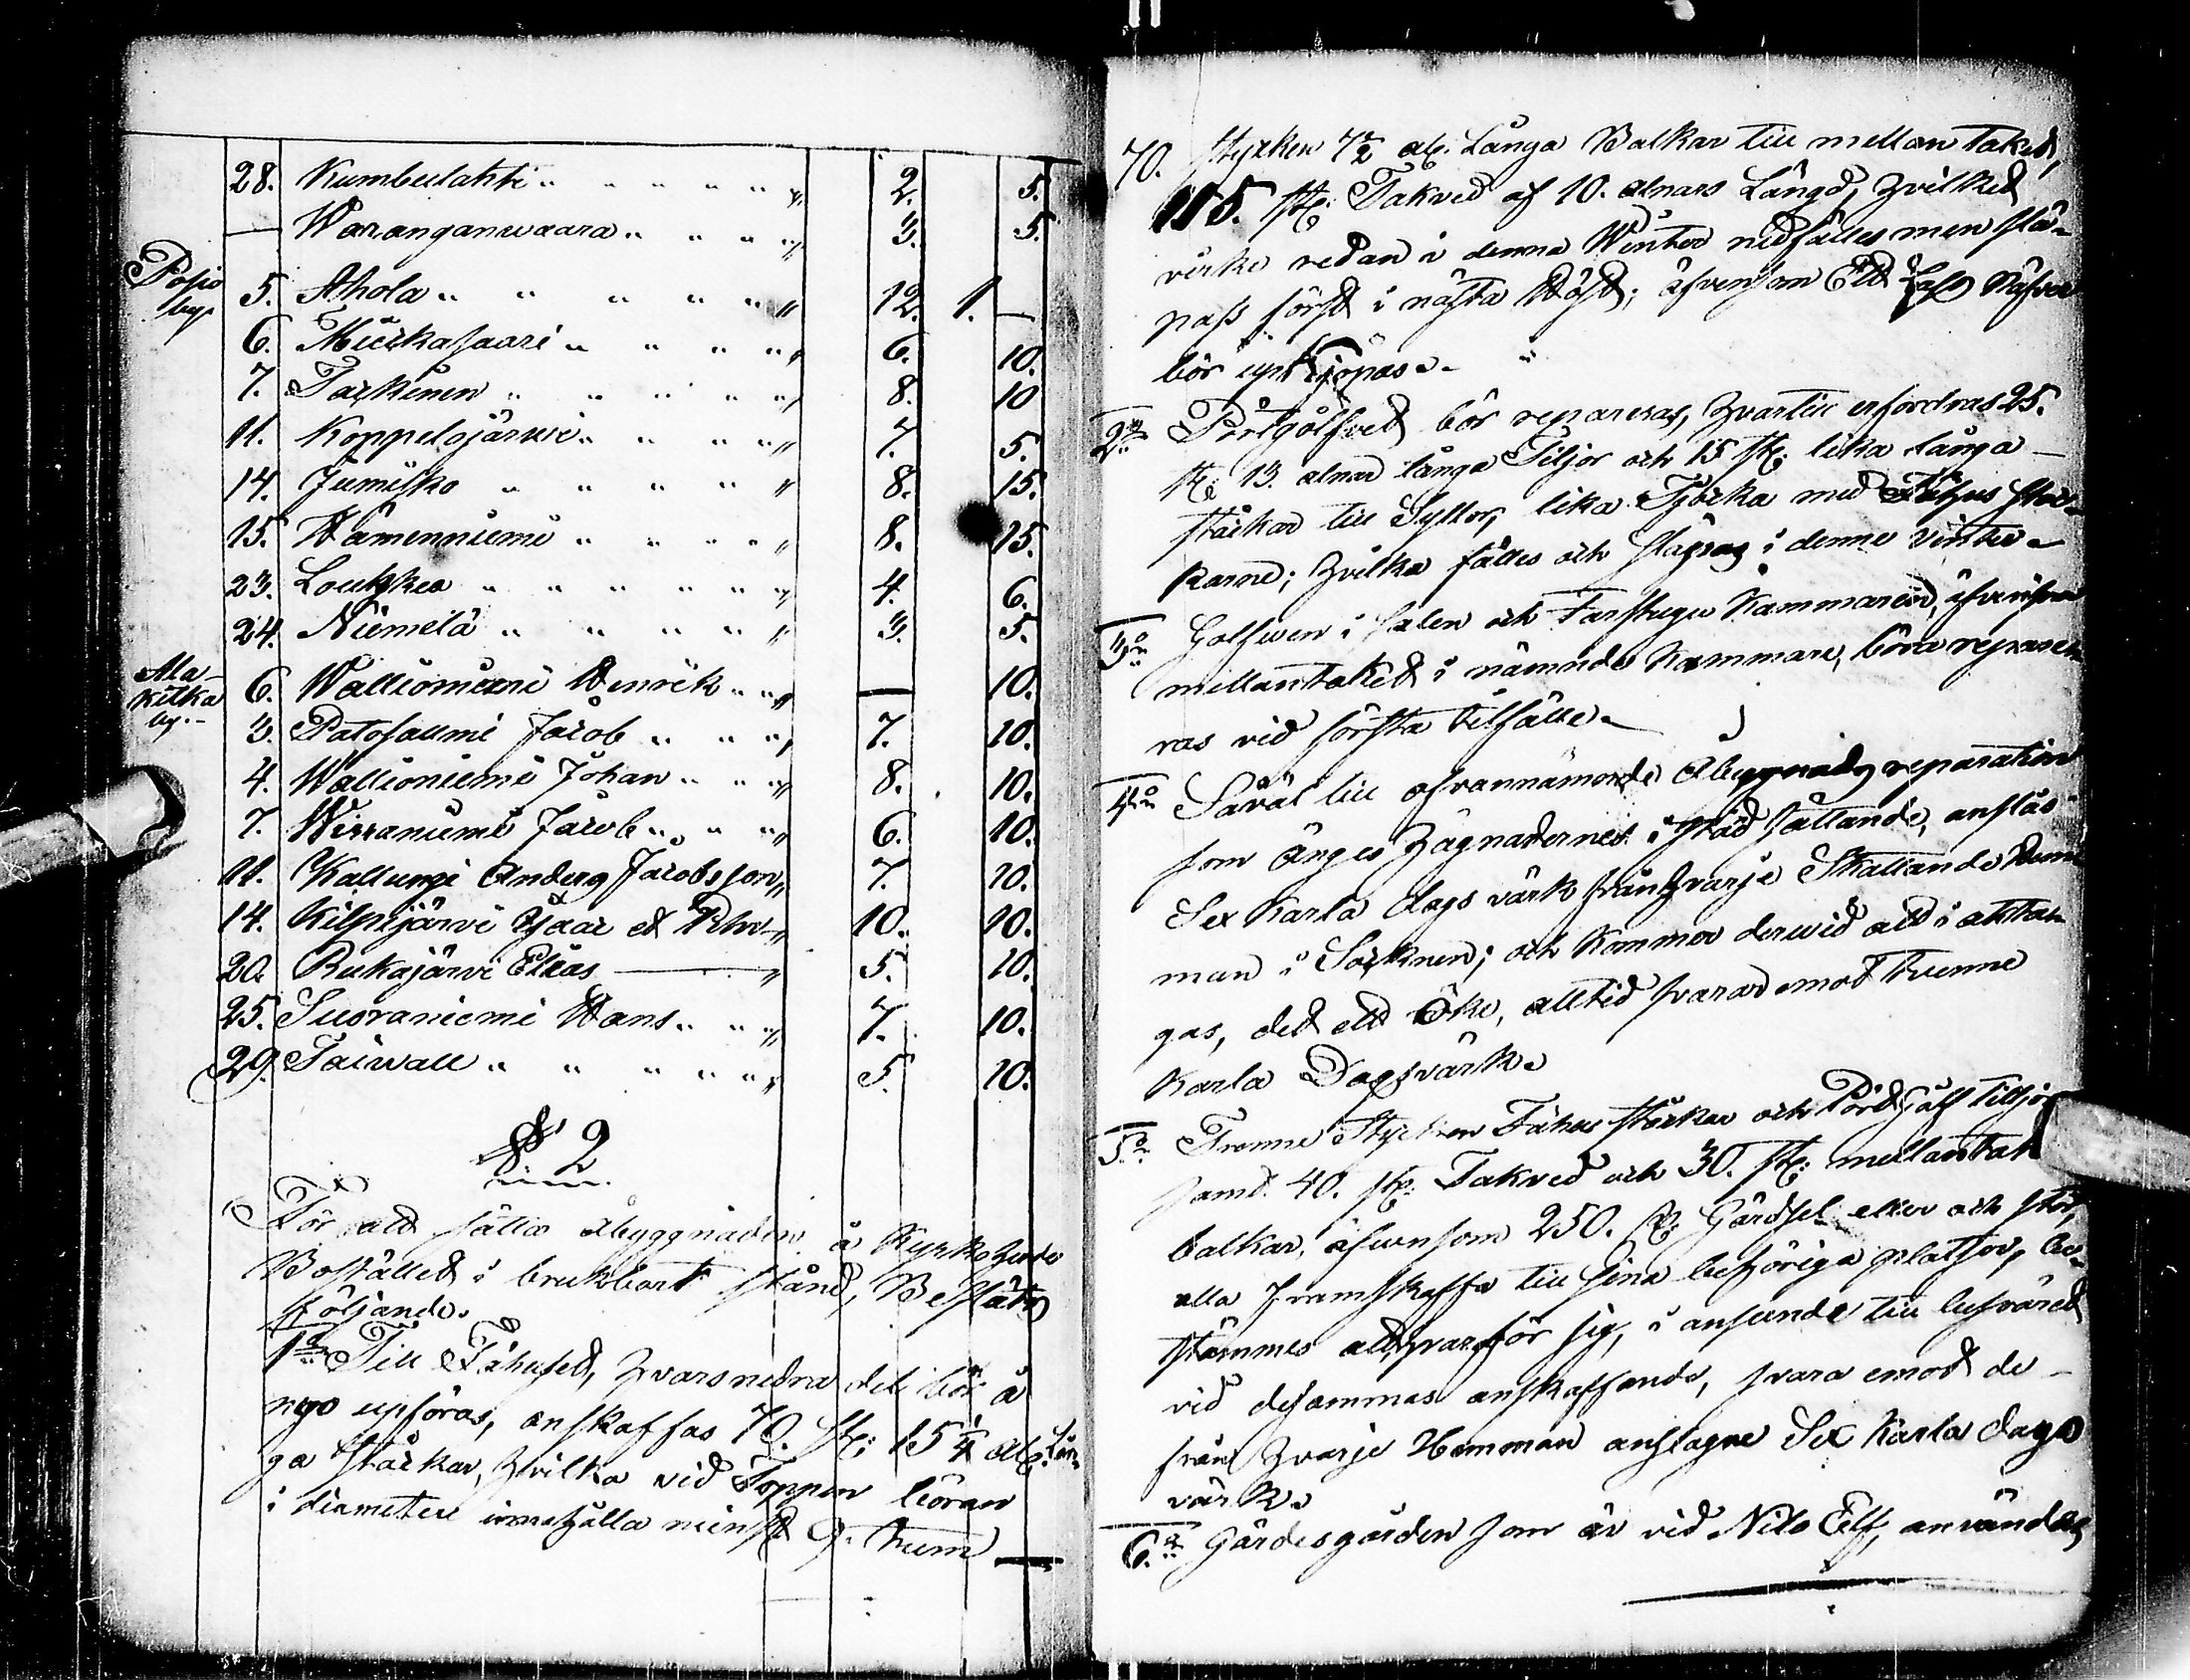 28. Kumbulahti " " " " " " 2. 5.
— Waranganwaara " " " " 3. 5.
Posio
by.
5. Ahola " " " " " 12. 1. —
6. Murkasaari " " " " 6. 10.
7. Tarkinen " " " " " 8. 10
11. Koppelojärwi " " " " 7. 5.
14. Jumisko " " " " " 8. 15.
15. Hämenniemi " " " " " 8. 15.
23. Loukkea " " " " " " 4. 6.
24. Niemelä " " " " " 3. 5.
Ala
Kitka
by.
6. Wallioniemi Henrik " " — 10.
3. Patosallmi Jacob " " " 7. 10.
4. Wallioniemi Johan " " " 8. 10.
7. Wirraniemi Jacob " " " 6. 10.
11. Kallungi Anders Jacobsson " 7. 10.
14. Kilpijärvi Isaac et Pehr " 10. 10.
20. Rukajärvi Elias — " 5. 10.
25. Suoraniemi Hans " " " 7. 10.
29. Taiwall " " " " " 5. 10.
§. 2
För att sätta åbyggnaden å Kyrkoherde
Bostället i brukbart stånd, Beslöts
följande.
1o Till Fähuset, hvars nedra del bör å
nyo upföras, anskaffas 70. St: 15 1/4 aln: Lån-
ga Stäckar, hvilka vid Toppen böran
i diameter innehålla minst 9. tum —
70. stycken 7 1/2 al: Långa Balkar till mellan taket,
115. st: Takved af 10. alnars Längd, hvilket
virke redan i denna Winter nedfälles men slä-
pas först i nästa Höst; äfvensom Ett Lass Näfver
bör upkjöpas.
2o Pörtgolfvet bör repareras, hvartill erfordras 25.
st: 13. alnar långa Tiljor och 15 st: lika långa
stäckar till Syllor, lika Tjocka med Fähus stoc-
karne; hvilka fälles och släpas i denne vinter.
3o Golfwen i Salen och Farstugu Kammaren, äfvensom
mellantaket i nämnde Kammare, böra repare-
ras vid första tilfälle.
4o Såväl till ofvannämnde Åbyggnads reparation
som Änges hägnadernes i stånd sättande, anslås
Sex Karla dags värk från hvarje Skattande Hem-
man i Socknen; och kommer dervid att i aktta-
gas, det ett Öke, alltid svarar emot Tvenne
Karla Dagsvärk.
5o Trenne Stycken Fähus stäckar och Pörtgålf tilljor
samt 40. st: Takved och 30. st: mellantak
balkar, äfwensom 250. st: Gärdsel eller och stör,
alla framskaffa till sina behöriga platser, be-
stämmes att, hvar för sig, i anseende till besväret
vid desammas anskaffande, svara emot de
från hvarje Hemman anslagne Sex Karla dags
värk.
6o Gärdesgården som är vid Nilo Elf, användes